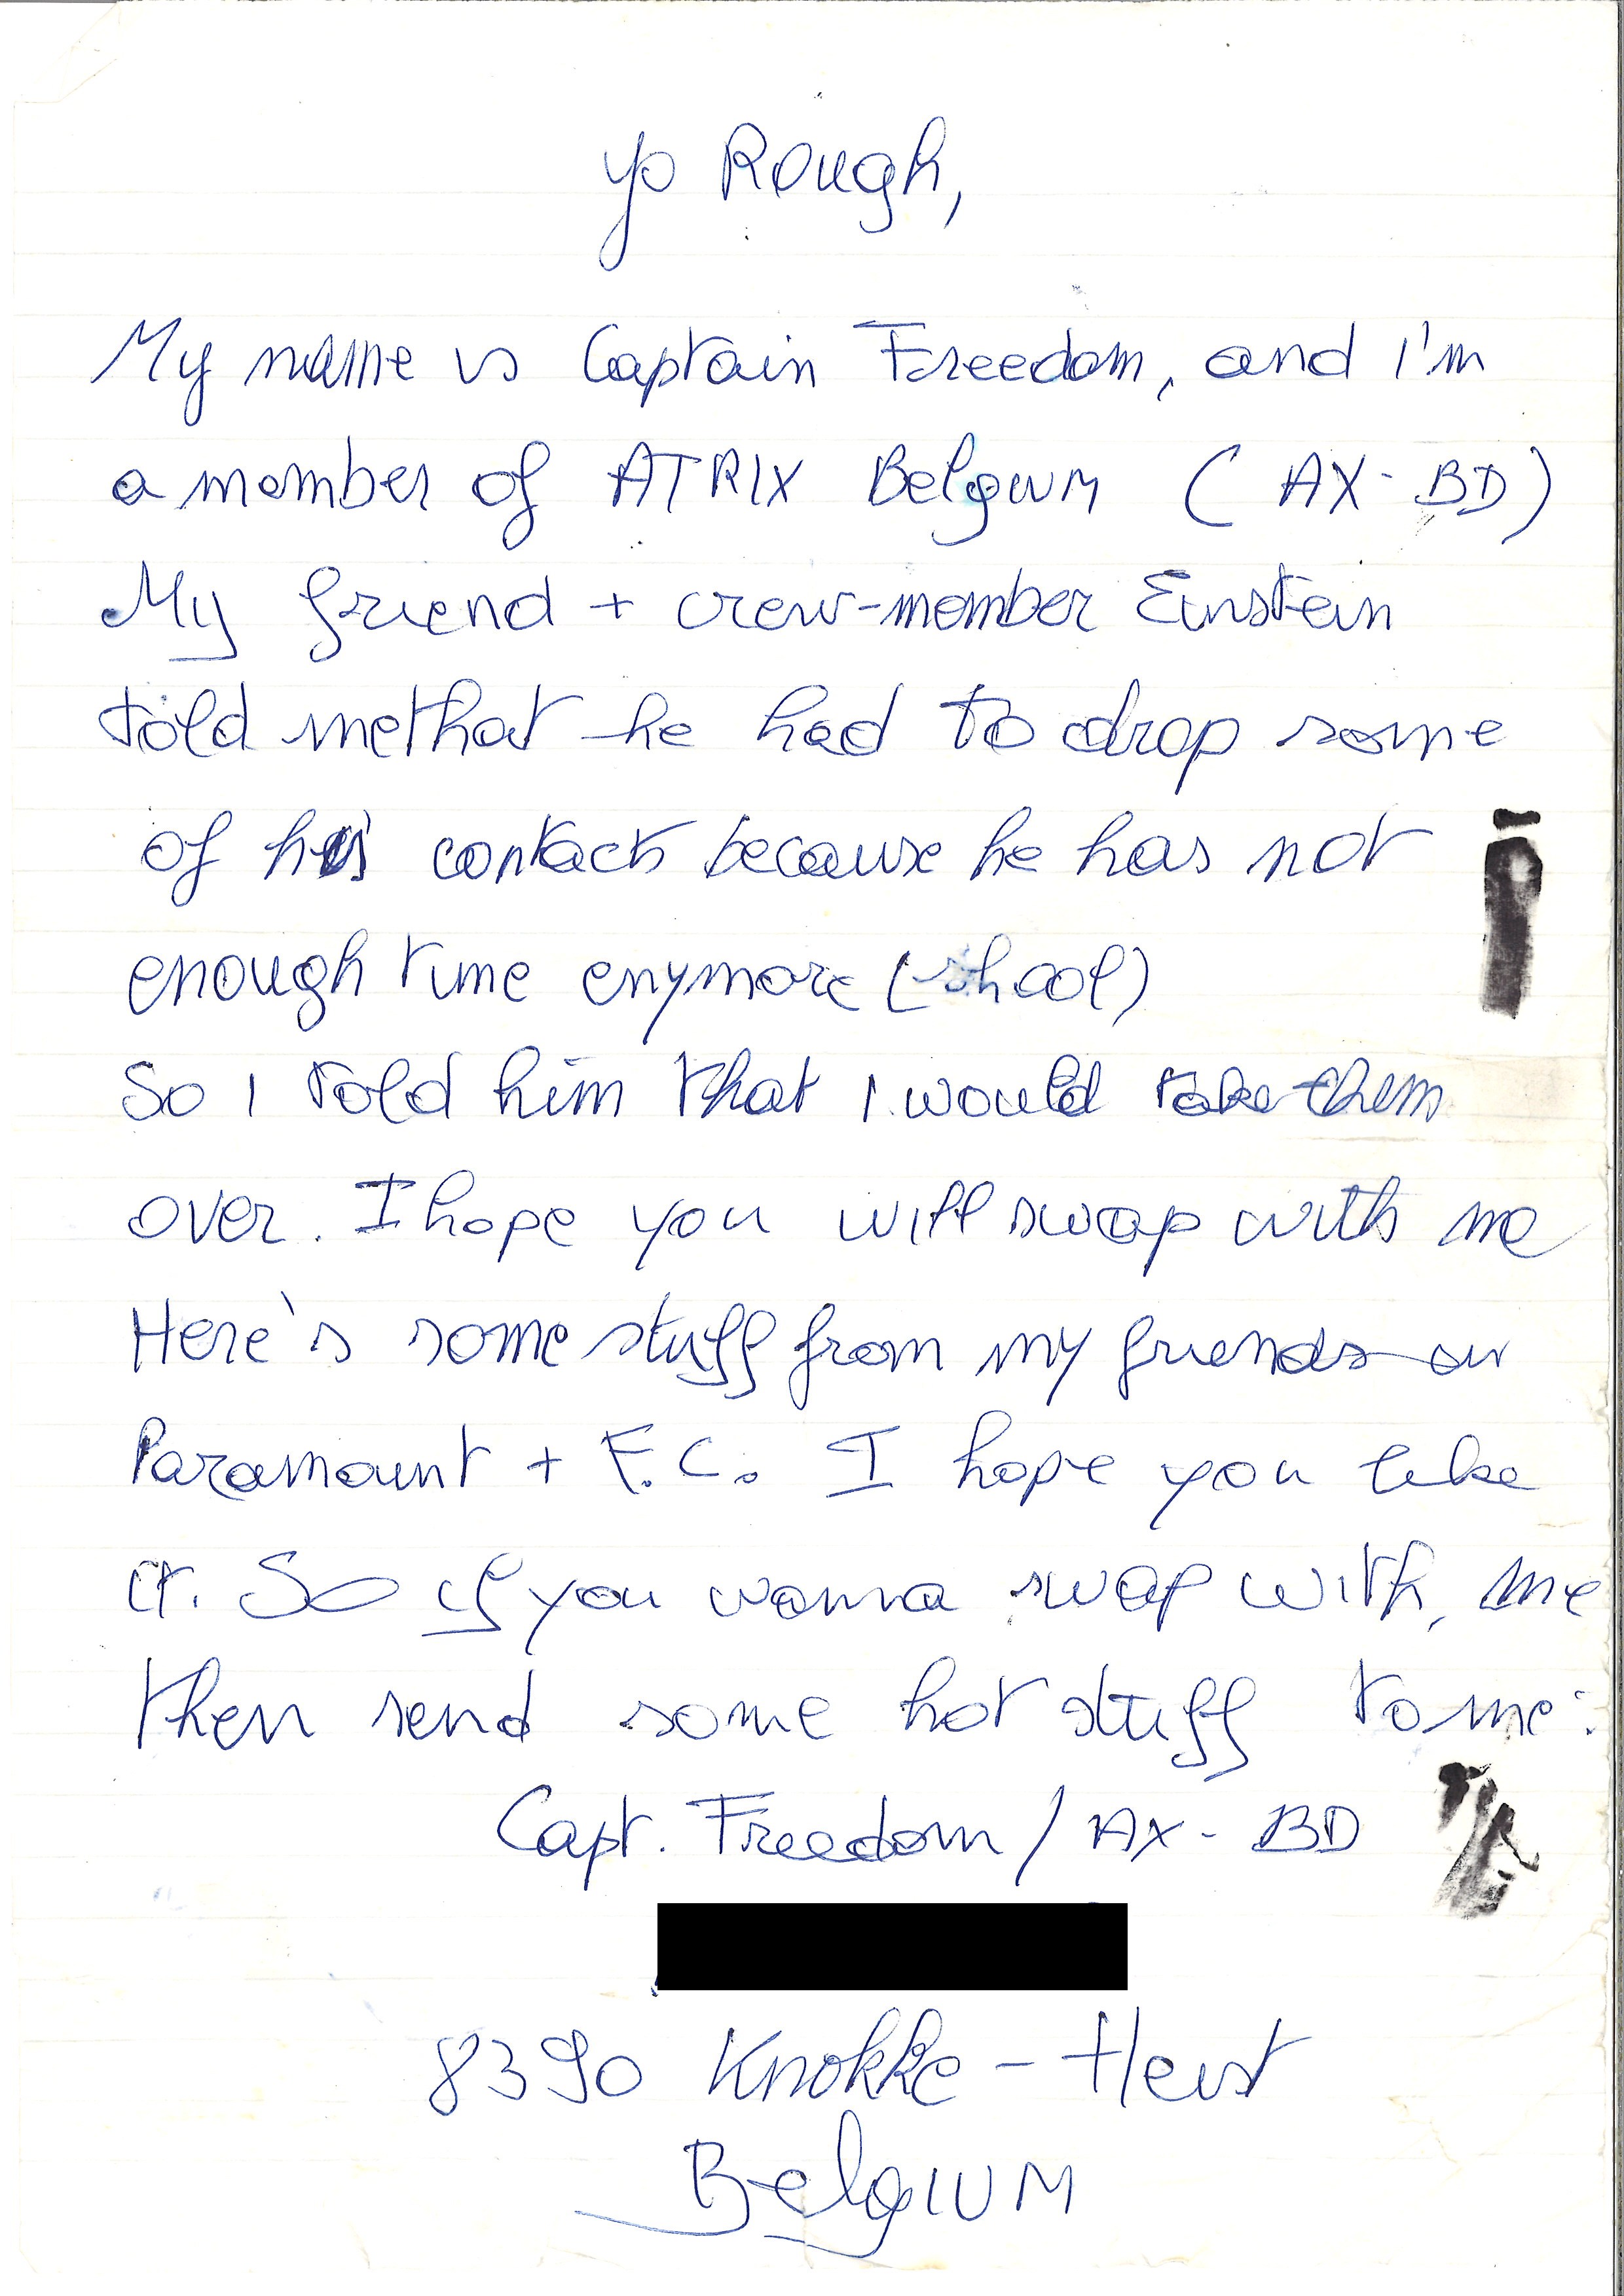 yo Rough,
My name is Captain Freedom, and I'm
a member of ATRIX Belgium (AX-BD)
My friend + crew-member Einstein
told me that he had to drop some
of his contacts because he has not
enough time enymore (shool)
So I told him that I would take them
over. I hope you will swap with me
Here's some stuff from my friends
Paramount + F.C. I hope you like
it. So if you wanna swap with me
then send some hot stuff to me:
Capt. Freedom / AX-BD
8390 Knokke - Heist
Belgium